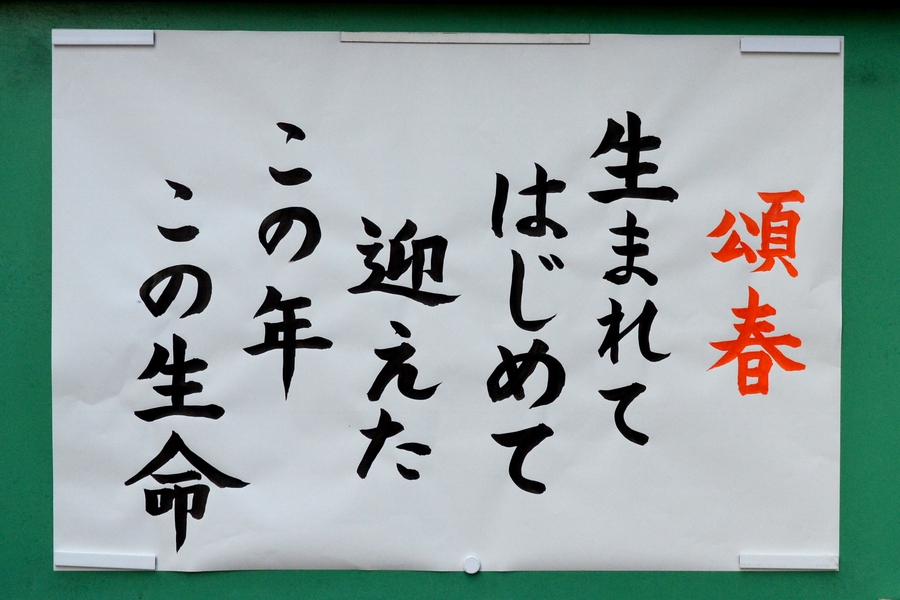 頌春
生まれて
はじめて
迎えた
この年
この生命